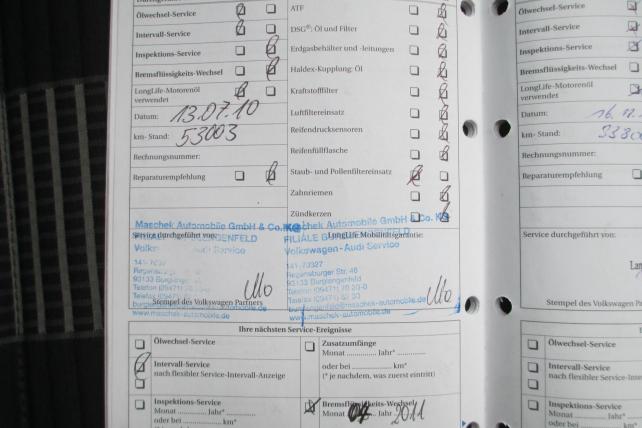 Ölwechsel-Service
Intervall-Service
Inspektions-Service
Bremsflüssigkeits-Wechsel
LongLife-Motorenöl
verwendet
Datum: 13.07.10
km-Stand: 53003
Rechnungsnummer:
Reparaturempfehlung
ATF
DSG®: Öl und Filter
Erdgasbehälter und -leitungen
Haldex-Kupplung: Öl
Kraftstofffilter
Luftfiltereinsatz
Reifendrucksensoren
Reifenfüllflasche
Staub- und Pollenfiltereinsatz
Zahnriemen
Zündkerzen
Maschek Automobile GmbH & Co. KG
Service durchgeführt von:
Volkswagen-Audi Service
93133 Burglengenfeld
Stempel des Volkswagen Partners
www.maschek-automobile.de
Maschek Automobile GmbH & Co. KG
LongLife Mobilitätsgarantie:
Volkswagen-Audi Service
Regensburger Str. 46
93133 Burglengenfeld
www.maschek-automobile.de
Ihre nächsten Service-Ereignisse
Ölwechsel-Service
Intervall-Service
nach flexibler Service-Intervall-Anzeige
Inspektions-Service
Monat Jahr*
oder bei km*
Zusatzumfänge
Monat Jahr*
oder bei km*
(* je nachdem, was zuerst eintritt)
Bremsflüssigkeits-Wechsel
Monat 07 Jahr 2011
Ölwechsel-Service
Intervall-Service
Inspektions-Service
Bremsflüssigkeits-Wechsel
LongLife-Motorenöl
verwendet
Datum:
km-Stand:
Rechnungsnummer:
Reparaturempfehlung
Service durchgeführt von:
Stempel des Volkswagen Pa
Ölwechsel-Service
Intervall-Service
nach flexibler Service-Inter
Inspektions-Service
Monat Jahr*
oder bei